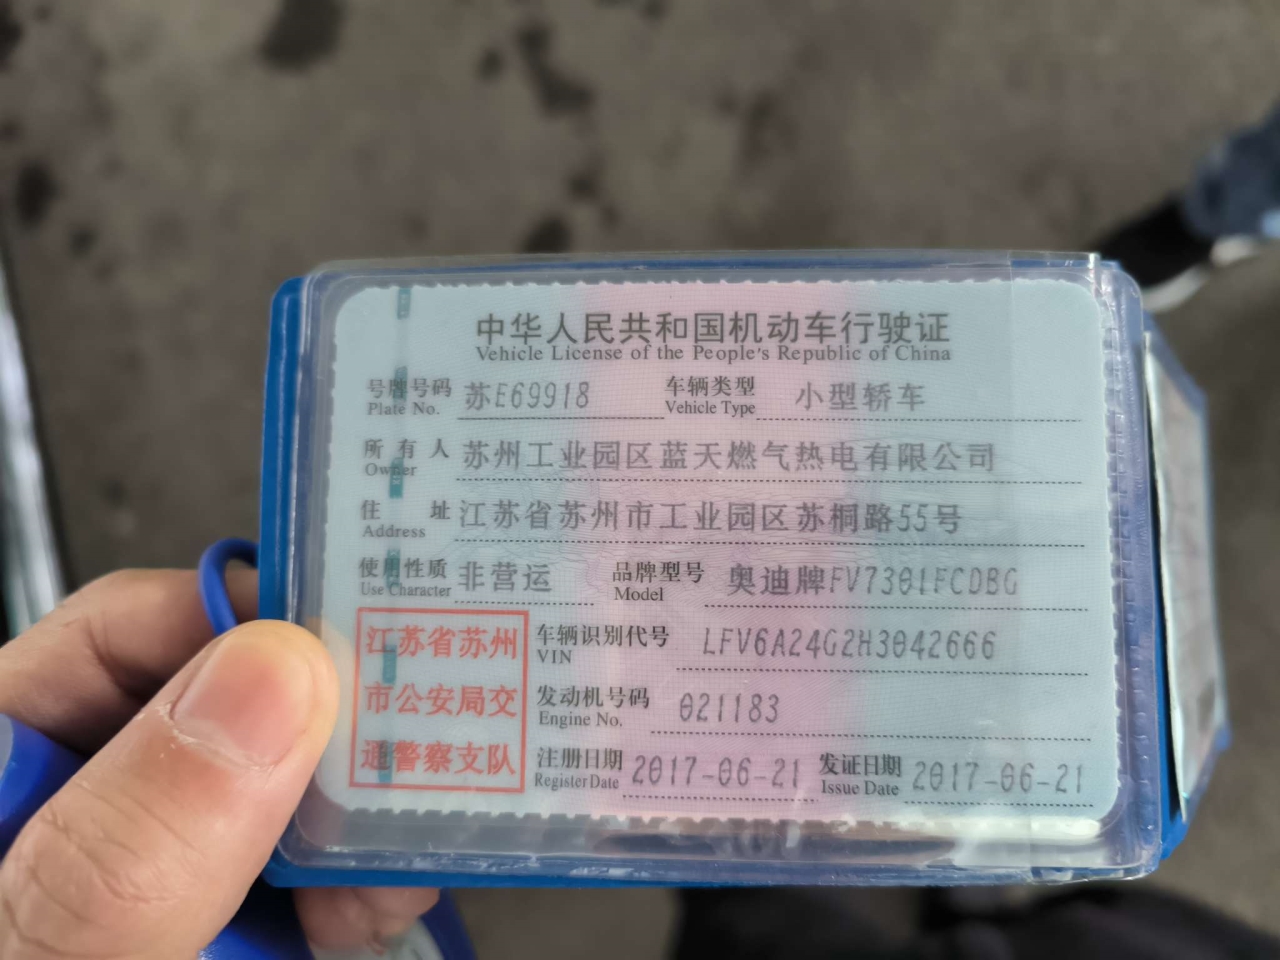 中华人民共和国机动车行驶证
Vehicle License of the People's Republic of China
号牌号码 苏E69918 车辆类型 小型轿车
Plate No. Vehicle Type
所有人 苏州工业园区蓝天燃气热电有限公司
Owner
住址 江苏省苏州市工业园区苏桐路55号
Address
使用性质 非营运 品牌型号 奥迪牌FV7301FCDBG
Use Character Model
江苏省苏州
市公安局交
通警察支队
车辆识别代号 LFV6A24G2H3042666
VIN
发动机号码 021183
Engine No.
注册日期 2017-06-21 发证日期 2017-06-21
Register Date Issue Date